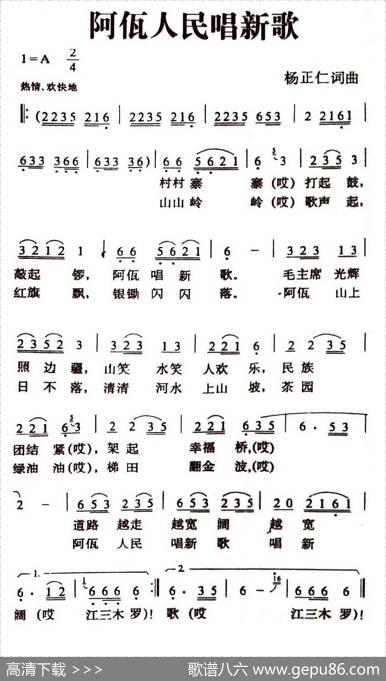 阿佤人民唱新歌
1=A 2/4
热情、欢快地
杨正仁词曲
‖: (2235 216 | 2235 216 | 2235 653 | 2 2161 |
633 366 | 633 36) | 66 5621 | 6 3 | 2 35 3 |
村村寨 寨(哎)打起鼓,
山山岭 岭(哎)歌声起,
3212 1 | 66 5621 | 6 - | 323 13 |
敲起锣, 阿佤唱新歌. 毛主席光辉
红旗飘, 银锄闪闪落. 阿佤山上
2352 3 | 133 123 | 216 2 | 22 35 |
照边疆, 山笑水笑人欢乐, 民族
日不落, 清清河水上山坡, 茶园
221 63 | 22 35 | 221 635 | 6·53 |
团结紧(哎), 架起幸福桥,(哎)
绿油油(哎), 梯田翻金波,(哎)
2 - | 653 523 | 235 653 | 20 2161 |
道路越走越宽阔越宽
阿佤人民唱新歌唱新
1. 2.
6·12 | 666 6 :‖ 6·35 | 6 - | 666 6 ‖
阔(哎 江三木罗)! 歌(哎 江三木罗)!
高清下载 >>>
歌谱八六 www.gepu86.com